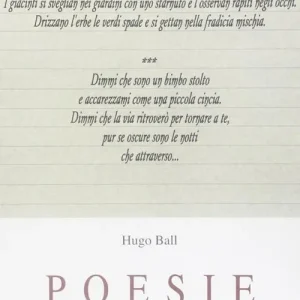 I giacinti si sveglian nei giardini con uno starnuto e l'osservan rapiti negli occhi.
Drizzano l'erbe le verdi spade e si gettan nella fradicia mischia.
***
Dimmi che sono un bimbo stolto
e accarezzami come una piccola cincia.
Dimmi che la via ritroverò per tornare a te,
pur se oscure sono le notti
che attraverso...
Hugo Ball
POESIE